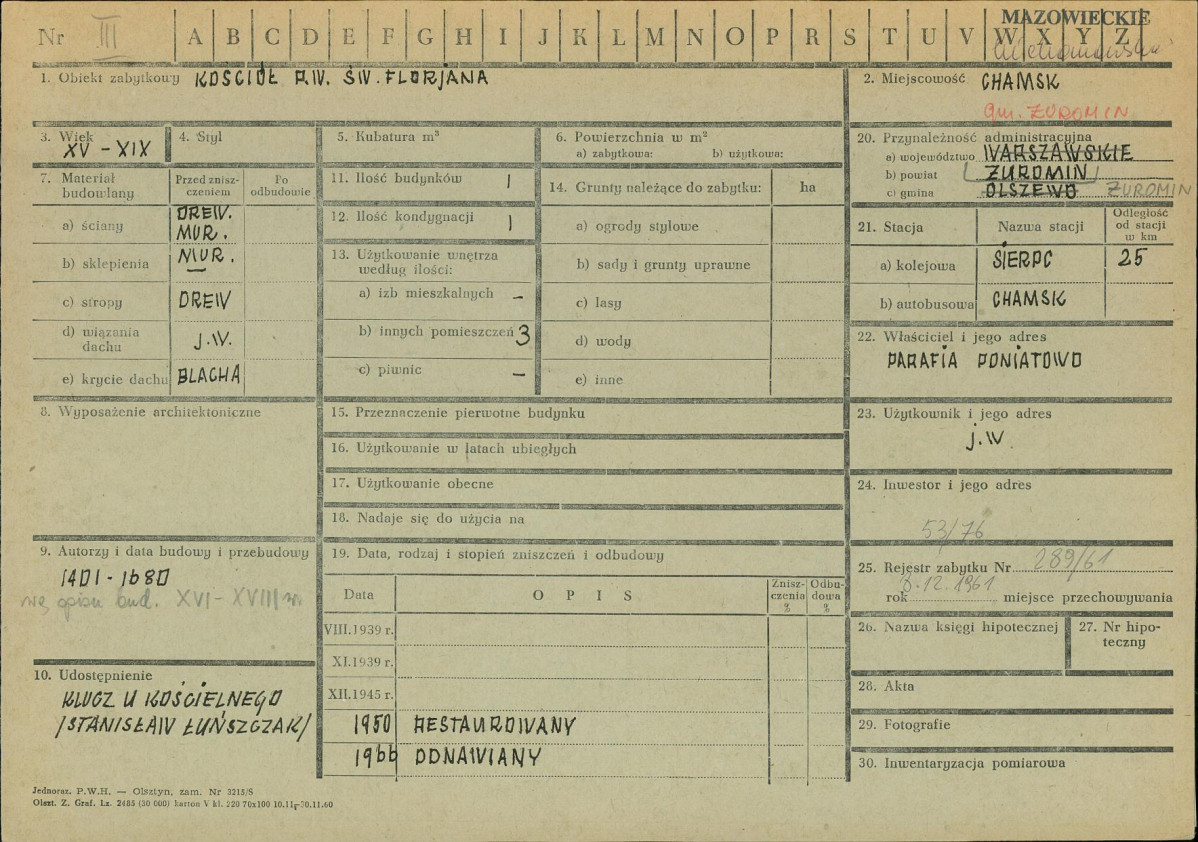 Nr III A B C D E F G H I J K L M N O P R S T U V W X Y Z
MAZOWIECKIE
1. Obiekt zabytkowy KOŚCIÓŁ P.W. ŚW. FLORJANA
2. Miejscowość CHAMSK
gm. ŻUROMIN
3. Wiek XV - XIX
4. Styl
5. Kubatura m³
6. Powierzchnia w m²
a) zabytkowa: b) użytkowa:
7. Materiał budowlany
Przed znisz-
czeniem
Po
odbudowie
a) ściany DREW.
MUR.
b) sklepienia MUR.
c) stropy DREW
d) wiązania
dachu J.W.
e) krycie dachu BLACHA
8. Wyposażenie architektoniczne
9. Autorzy i data budowy i przebudowy
1401 - 1680
wg opisu bud. XVI - XVIII w.
10. Udostępnienie
KLUCZ U KOŚCIELNEGO
/STANISŁAW ŁUŃSZCZAK/
11. Ilość budynków 1
12. Ilość kondygnacji 1
13. Użytkowanie wnętrza
według ilości:
a) izb mieszkalnych –
b) innych pomieszczeń 3
c) piwnic –
14. Grunty należące do zabytku: ha
a) ogrody stylowe
b) sady i grunty uprawne
c) lasy
d) wody
e) inne
15. Przeznaczenie pierwotne budynku
16. Użytkowanie w latach ubiegłych
17. Użytkowanie obecne
18. Nadaje się do użycia na
19. Data, rodzaj i stopień zniszczeń i odbudowy
Data OPIS Znisz-
czenia
% Odbu-
dowa
%
VIII.1939 r.
XI.1939 r.
XII.1945 r.
1950 RESTAUROWANY
1966 ODNAWIANY
20. Przynależność administracyjna
a) województwo WARSZAWSKIE
b) powiat ŻUROMIN
c) gmina OLSZEWO ŻUROMIN
21. Stacja Nazwa stacji Odległość
od stacji
w km
a) kolejowa SIERPC 25
b) autobusowa CHAMSK
22. Właściciel i jego adres
PARAFIA PONIATOWO
23. Użytkownik i jego adres
J.W.
24. Inwestor i jego adres
53/76
25. Rejestr zabytku Nr 289/61
rok 8.12.1961 miejsce przechowywania
26. Nazwa księgi hipotecznej
27. Nr hipo-
teczny
28. Akta
29. Fotografie
30. Inwentaryzacja pomiarowa
Jednoraz. P.W.H. — Olsztyn, zam. Nr 3215/S
Olszt. Z. Graf. Lz. 2485 (30 000) karton V kl. 220 70x100 10.11.-30.11.60